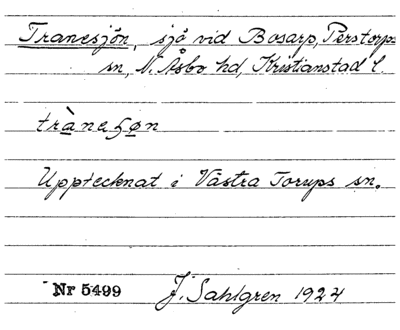 Tranesjön, sjö vid Bosarp, Perstorps
sn, N. Åsbo hd, Kristianstad l.
trànaʂøn
Upptecknat i Västra Torups sn.
Nr 5499 J. Sahlgren 1924